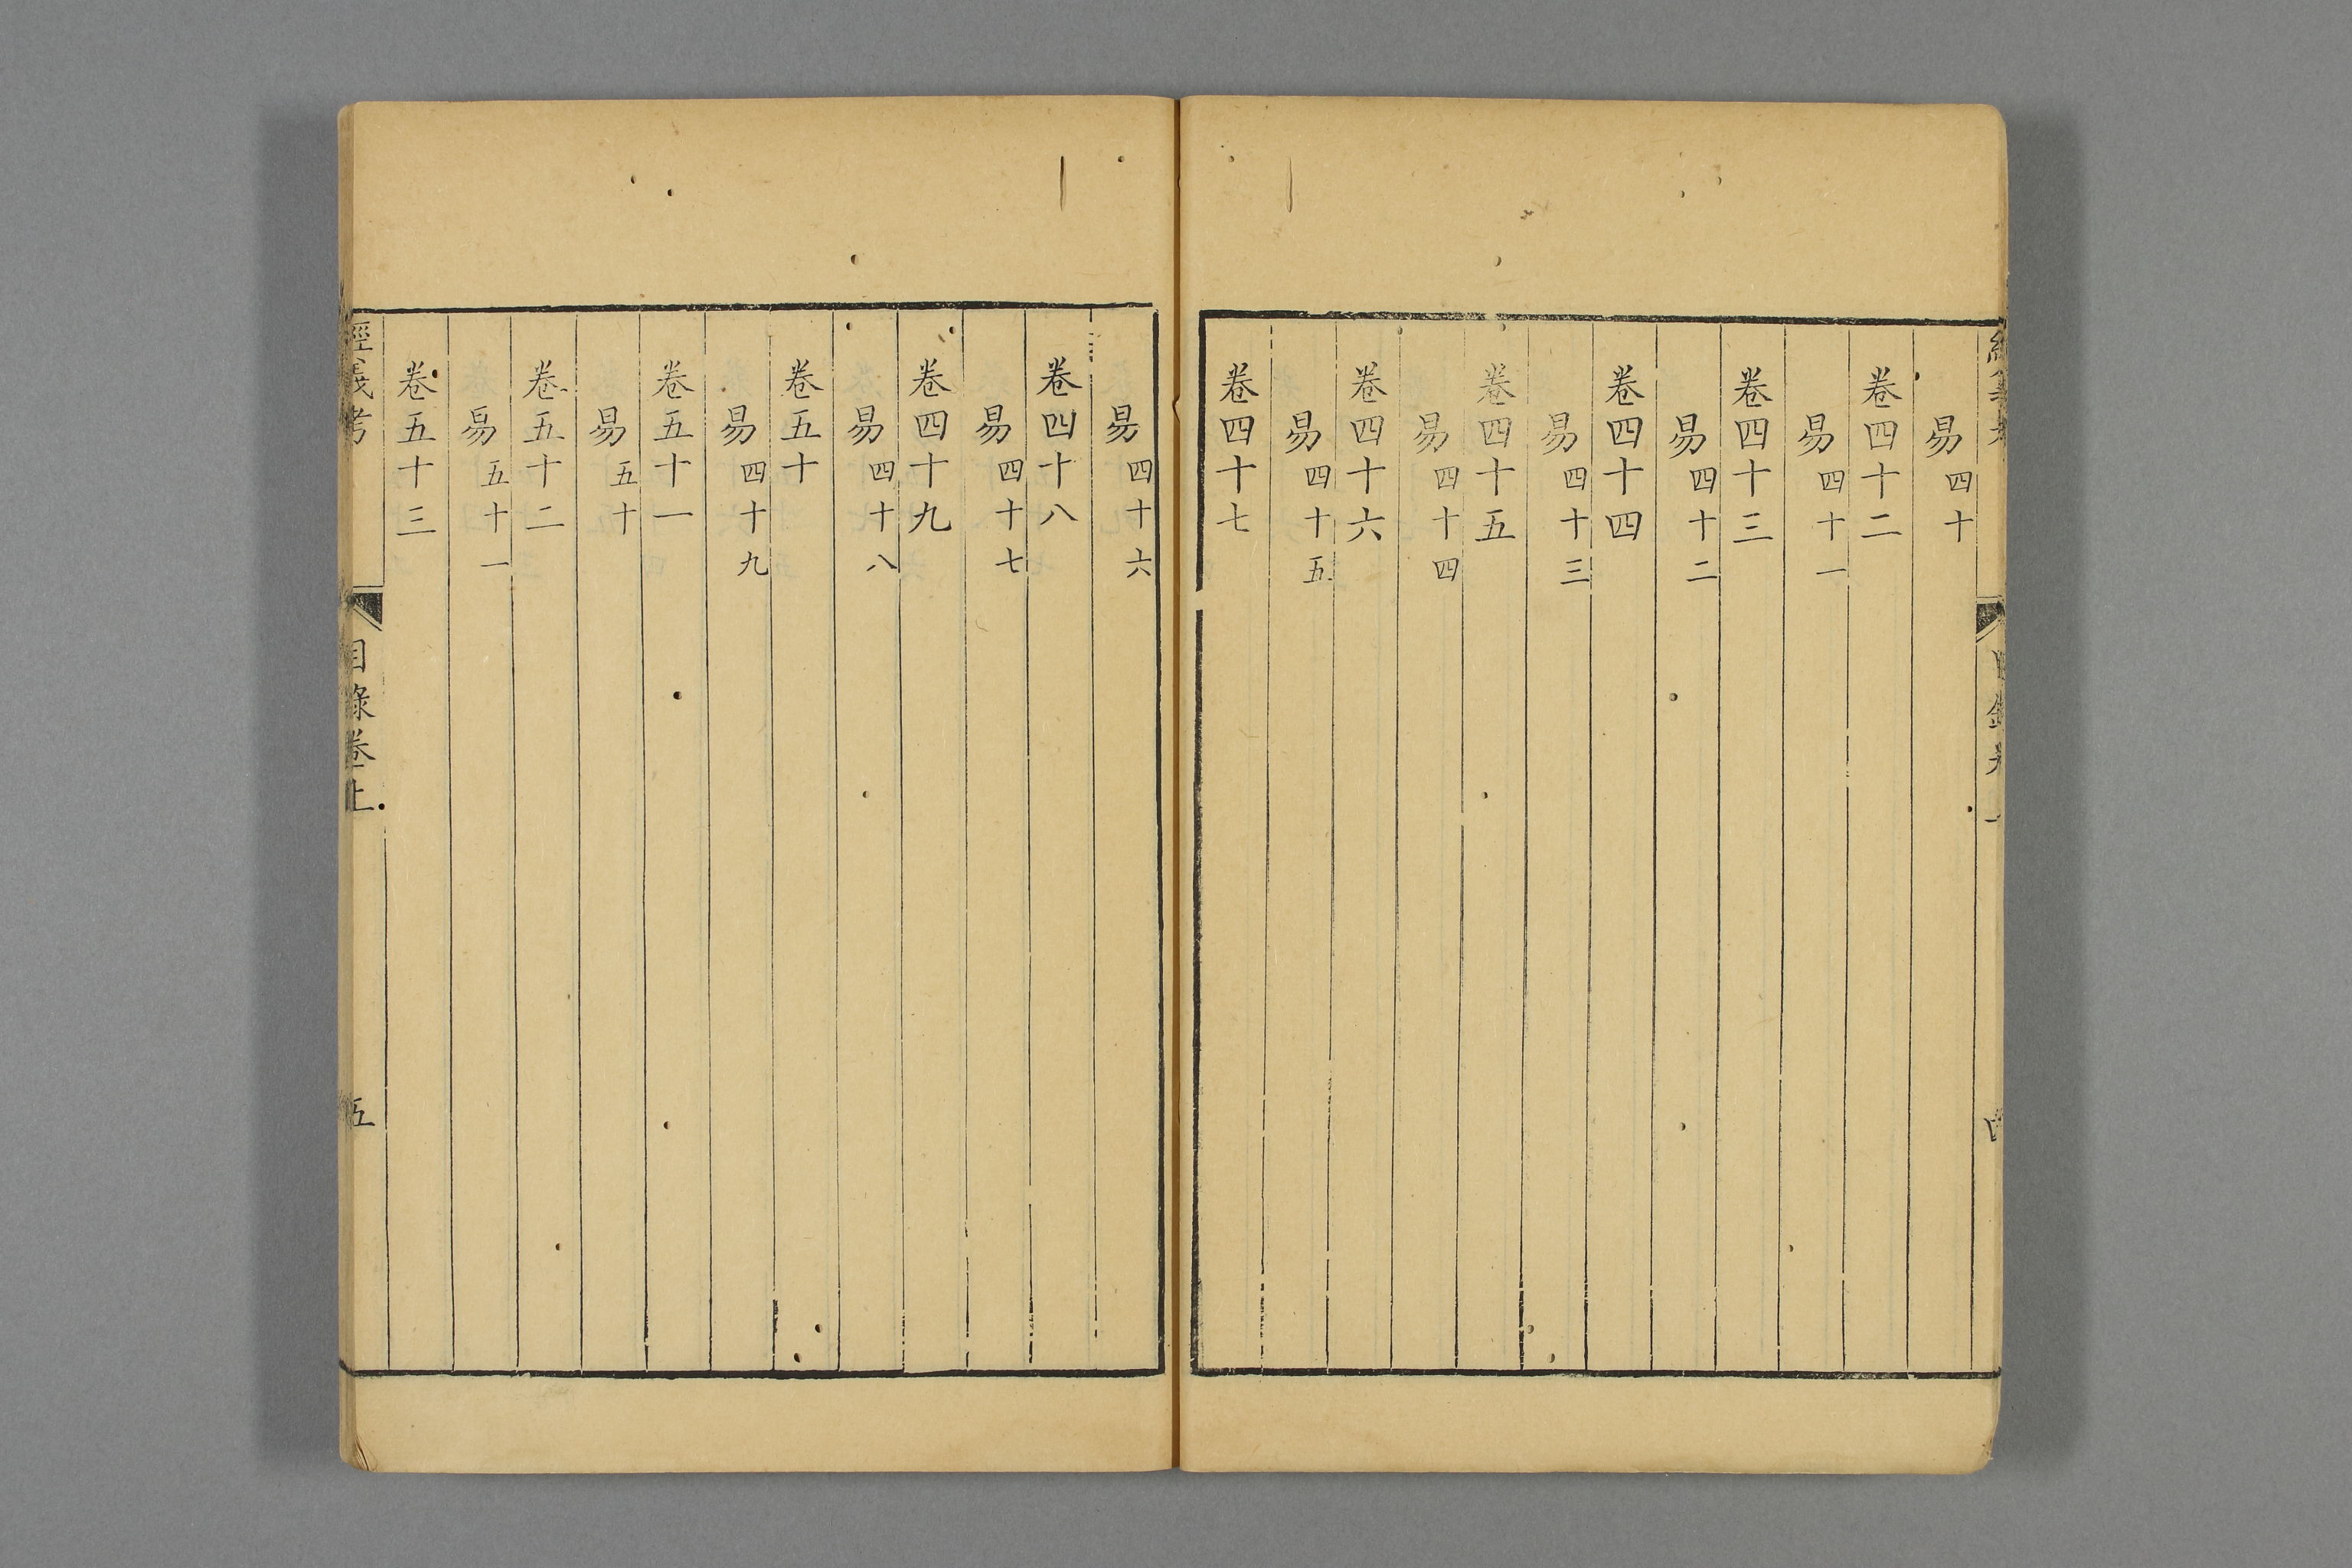 易四十
卷四十二
易四十一
卷四十三
易四十二
卷四十四
易四十三
卷四十五
易四十四
卷四十六
易四十五
卷四十七
易四十六
卷四十八
易四十七
卷四十九
易四十八
卷五十
易四十九
卷五十一
易五十
卷五十二
易五十一
卷五十三
經義考
目錄卷上
五